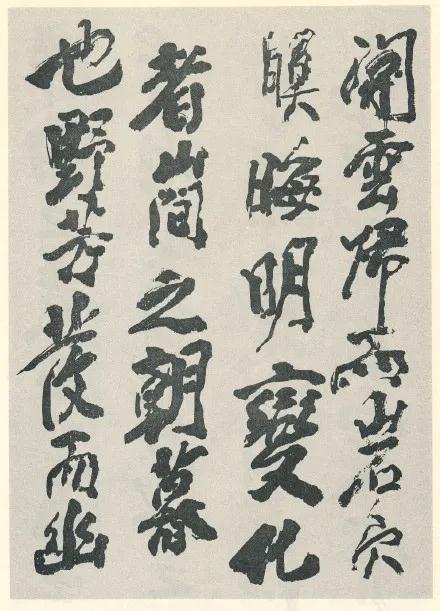 開雲歸而岩穴
暝晦明變化
者山間之朝暮
也野芳發而幽